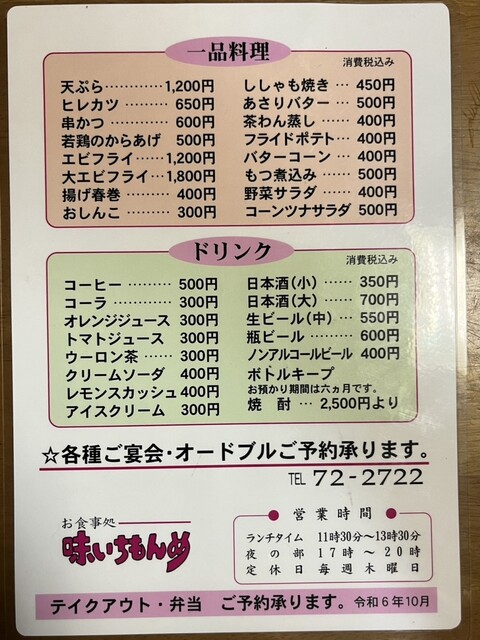 一品料理
消費税込み
天ぷら…………1,200円
ヒレカツ ……… 650円
串かつ ………… 600円
若鶏のからあげ 500円
エビフライ……1,200円
大エビフライ…1,800円
揚げ春巻 ……… 400円
おしんこ ……… 300円
ししゃも焼き … 450円
あさりバター … 500円
茶わん蒸し …… 400円
フライドポテト… 400円
バターコーン … 400円
もつ煮込み …… 500円
野菜サラダ …… 400円
コーンツナサラダ 500円
ドリンク
消費税込み
コーヒー ……… 500円
コーラ ………… 300円
オレンジジュース 300円
トマトジュース 300円
ウーロン茶 …… 300円
クリームソーダ 400円
レモンスカッシュ 400円
アイスクリーム 300円
日本酒(小) …… 350円
日本酒(大) …… 700円
生ビール(中) … 550円
瓶ビール ……… 600円
ノンアルコールビール 400円
ボトルキープ
お預かり期間は六ヵ月です。
焼酎 … 2,500円より
☆各種ご宴会・オードブルご予約承ります。
TEL 72-2722
お食事処
味いちもんめ
● 営業時間 ●
ランチタイム 11時30分〜13時30分
夜の部 17時〜20時
定休日 毎週木曜日
テイクアウト・弁当 ご予約承ります。令和6年10月